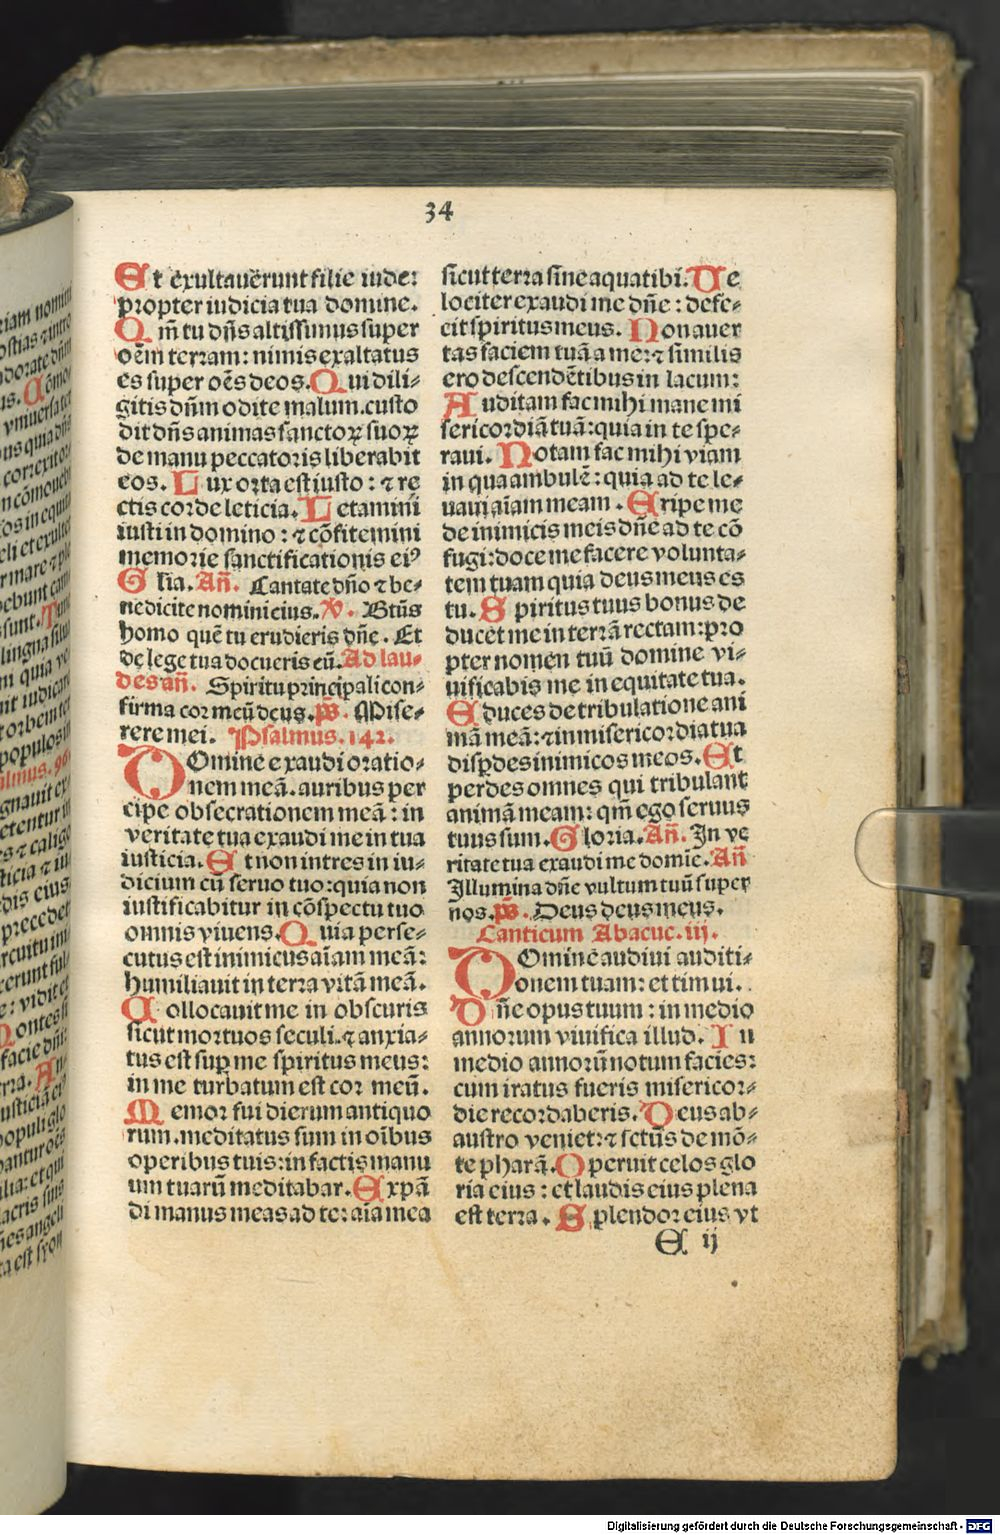 34
Et exultauerunt filie iude:
propter iudicia tua domine.
Qm̄ tu dn̄s altissimus super
oēm terram: nimis exaltatus
es super oēs deos. Qui dili⸗
gitis dn̄m odite malum. custo
dit dn̄s animas sanctoꝝ suoꝝ
de manu peccatoris liberabit
eos. Lux orta est iusto: ⁊ re
ctis corde leticia. Letamini
iusti in domino: ⁊ cōfitemini
memorie sanctificationis eiꝰ
Glīa. Añ. Cantate dño ⁊ be⸗
nedicite nomini eius. V. Btūs
homo quē tu erudieris dñe. Et
de lege tua docueris eū. Ad lau⸗
des añ. Spiritu principali con⸗
firma cor meū deus. ps. Mise⸗
rere mei. Psalmus. 142.
DOmine exaudi oratio⸗
nem meā. auribus per
cipe obsecrationem meā: in
veritate tua exaudi me in tua
iusticia. Et non intres in iu⸗
dicium cū seruo tuo: quia non
iustificabitur in cōspectu tuo
omnis viuens. Quia perse⸗
cutus est inimicus aīam meā:
humiliauit in terra vitā meā.
Collocauit me in obscuris
sicut mortuos seculi. ⁊ anxia⸗
tus est sup me spiritus meus:
in me turbatum est cor meū.
Memor fui dierum antiquo
rum. meditatus sum in oībus
operibus tuis: in factis manu
um tuarū meditabar. Expā
di manus meas ad te: aīa mea
sicut terra sine aqua tibi. Ue
lociter exaudi me dñe: defe⸗
cit spiritus meus. Non auer
tas faciem tuā a me: ⁊ similis
ero descendētibus in lacum:
Auditam fac mihi mane mi
sericordiā tuā: quia in te spe⸗
raui. Notam fac mihi viam
in qua ambulē: quia ad te le⸗
uaui aīam meam. Eripe me
de inimicis meis dñe ad te cō
fugi: doce me facere volunta⸗
tem tuam quia deus meus es
tu. Spiritus tuus bonus de
ducet me in terrā rectam: pro
pter nomen tuū domine vi⸗
uificabis me in equitate tua.
Educes de tribulatione ani
mā meā: ⁊ in misericordia tua
dispdes inimicos meos. Et
perdes omnes qui tribulant
animā meam: qm̄ ego seruus
tuus sum. Gloria. Añ. In ve
ritate tua exaudi me domīe. Añ
Illumina dñe vultum tuū super
nos. ps. Deus deus meus.
Canticum Abacuc. iij.
DOmine audiui auditi⸗
onem tuam: et timui.
Dñe opus tuum: in medio
annorum viuifica illud. In
medio annorū notum facies:
cum iratus fueris misericor⸗
die recordaberis. Deus ab⸗
austro veniet: ⁊ sctūs de mō⸗
te pharā. Operuit celos glo
ria eius: et laudis eius plena
est terra. Splendor eius vt
E ij
Digitalisierung gefördert durch die Deutsche Forschungsgemeinschaft - DFG